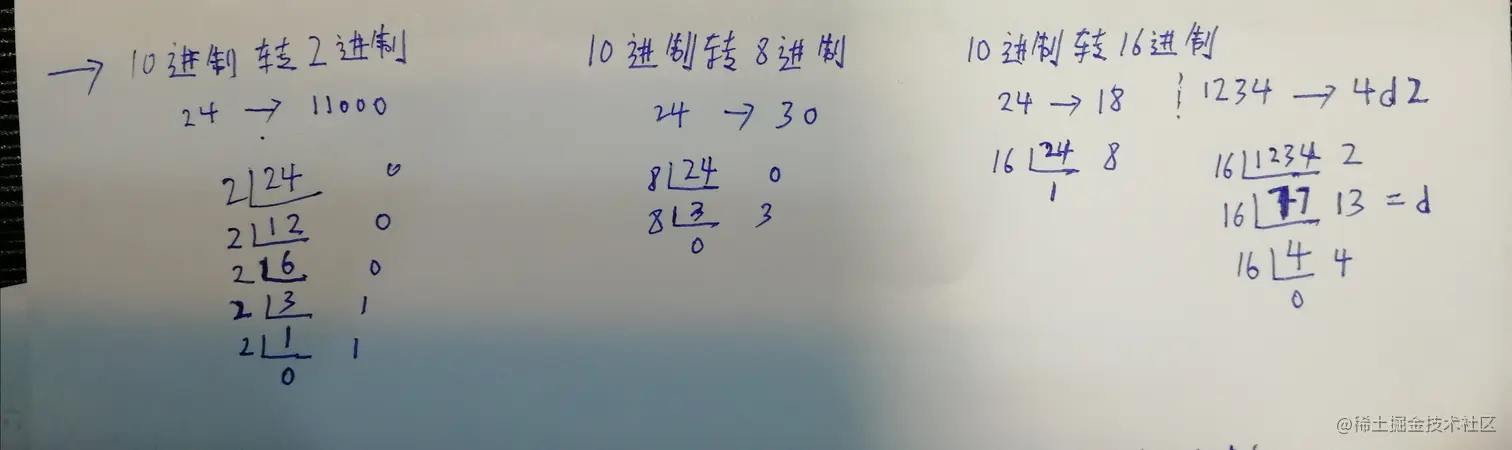 → 10进制转2进制
24 → 11000
2 24 0
2 12 0
2 6 0
2 3 1
2 1 1
0
10进制转8进制
24 → 30
8 24 0
8 3 3
0
10进制转16进制
24 → 18
16 24 8
1
1234 → 4d2
16 1234 2
16 77 13 = d
16 4 4
0
@稀土掘金技术社区